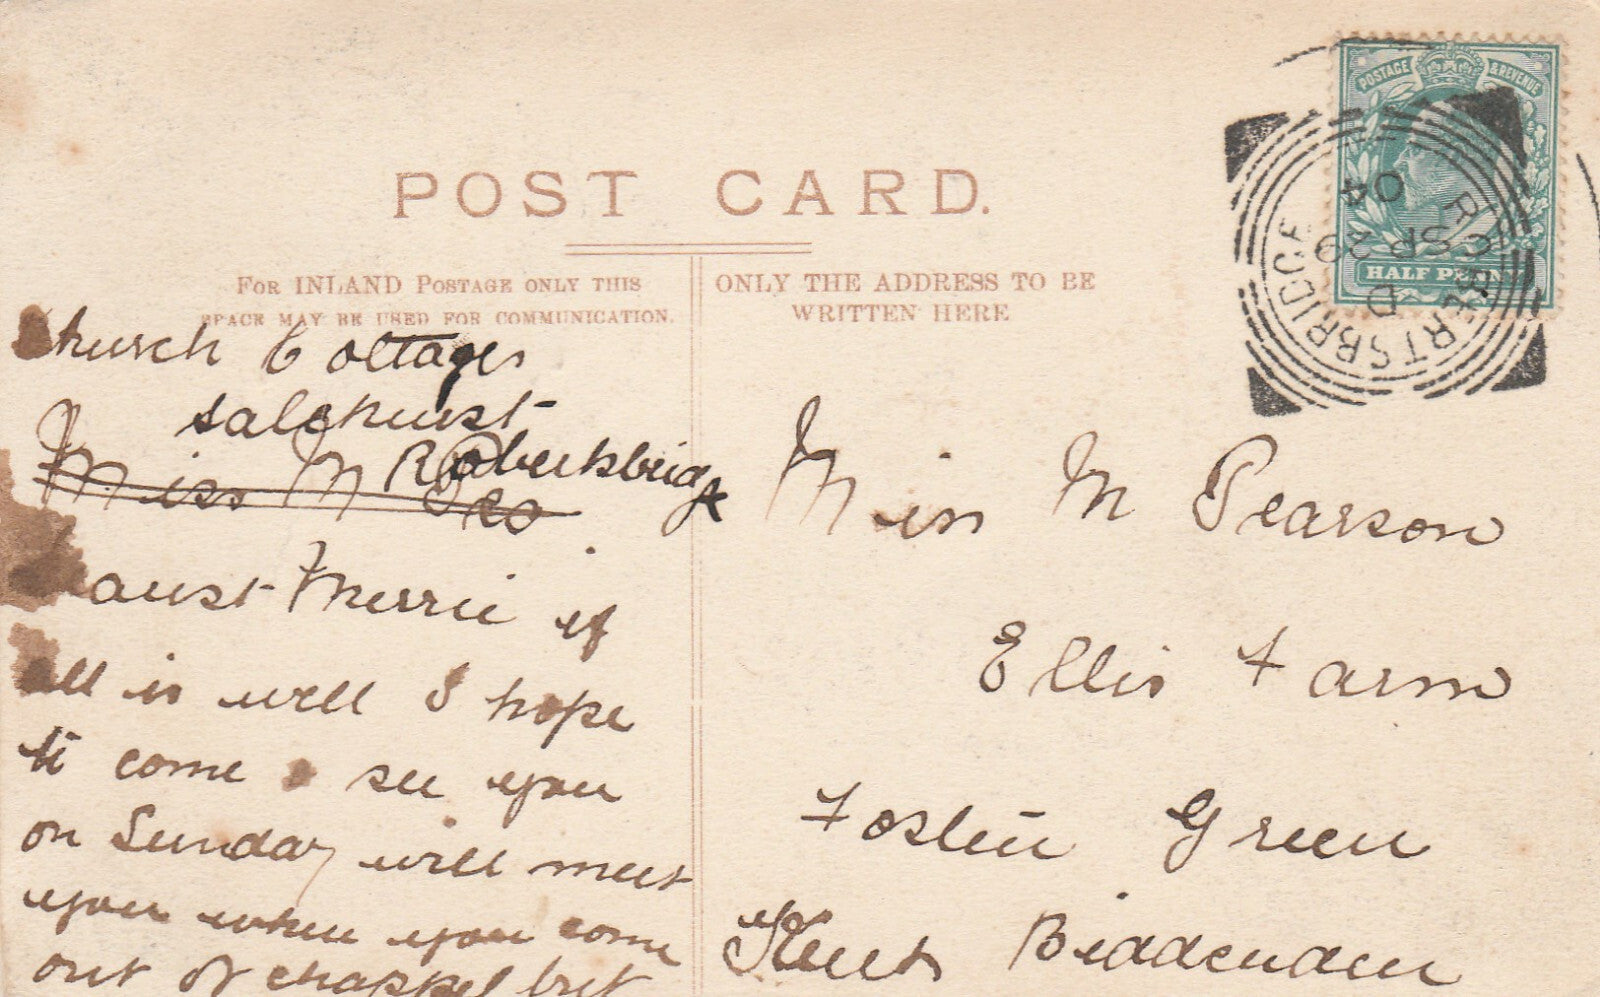 POST CARD.
FOR INLAND POSTAGE ONLY THIS
SPACE MAY BE USED FOR COMMUNICATION.
ONLY THE ADDRESS TO BE
WRITTEN HERE
POSTAGE & REVENUE
HALF PENN
ROBERTSBRIDGE
D
SP 29
04
Church Cottages
Salehurst
Robertsbridge
Miss M
Merrie if
all is well I hope
to come & see you
on Sunday will meet
you when you come
out of chappel but
Miss M Pearson
Ellis Farm
Green
Kent Biddenden